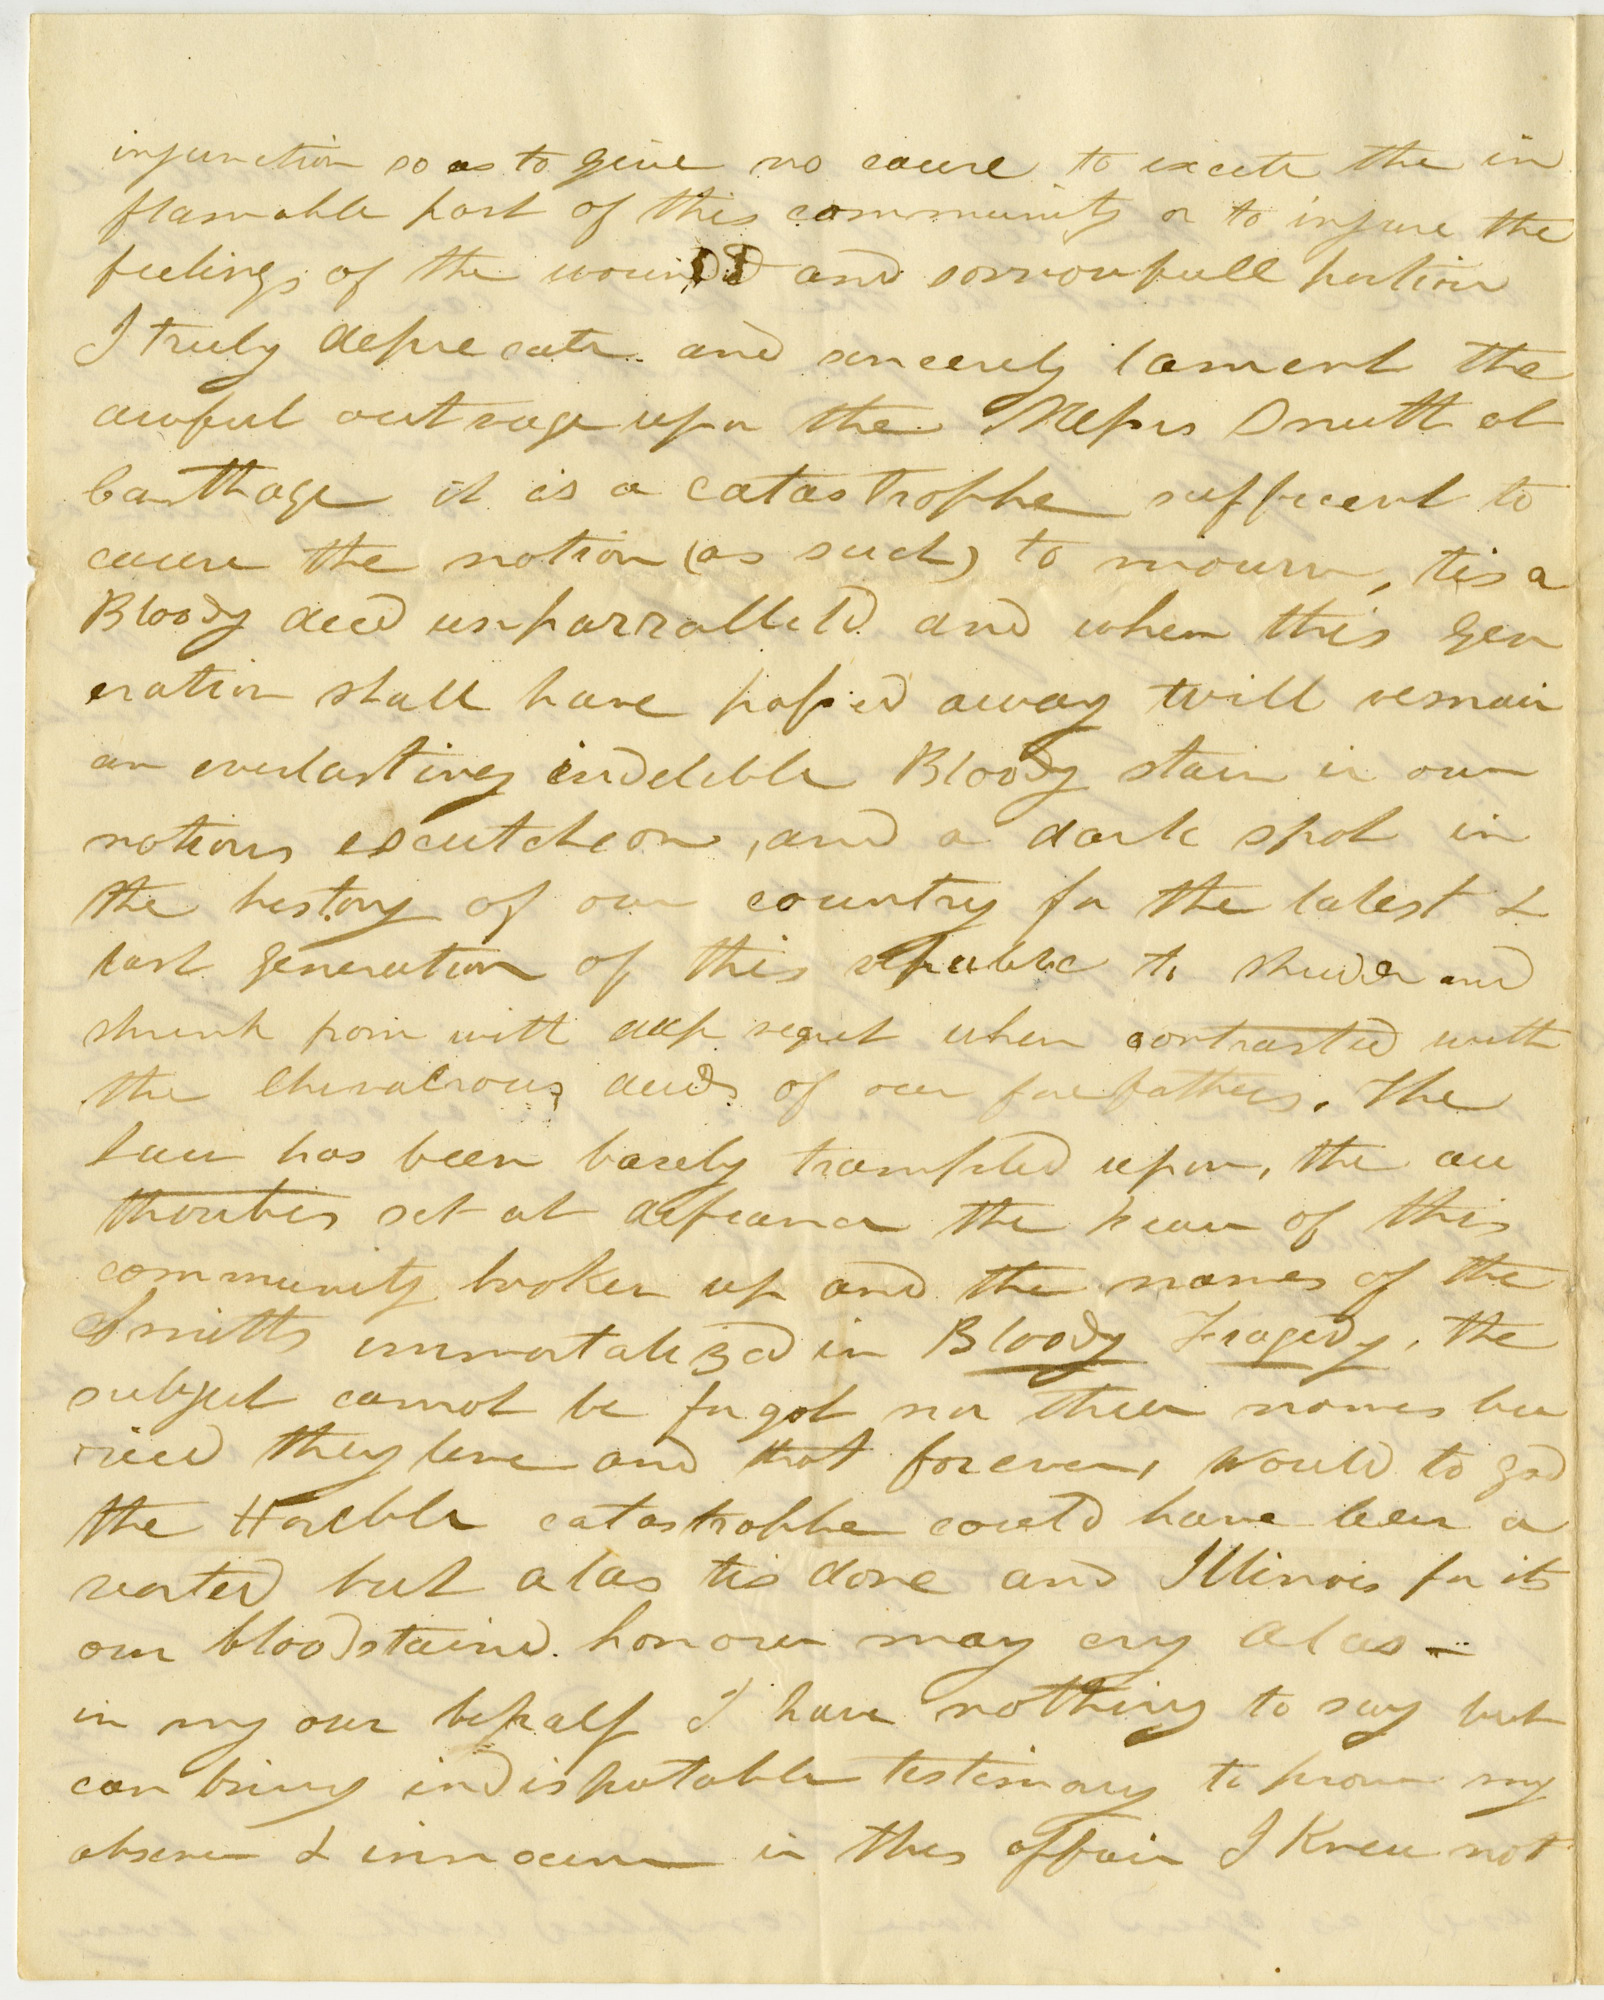 injunction so as to give no cause to excite the in
flamable part of this community or to injure the
feelings of the wounDD and sorrowfull portion
I truly deprecate and sincerely lament the
awful outrage upon the Messrs Smith at
Carthage it is a catastrophe sufficent to
cause the nation (as such) to mourn, tis a
Bloody deed unparralleld and when this gen
eration shall have passed away twill remain
an everlasting indelible Bloody stain in our
nations escutcheon, and a dark spot in
the history of our country for the latest &
last generation of this republic to shuder and
shrink from with deep regret when contrasted with
the Chivalrous deeds of our forefathers. The
law has been basely trampled upon, the au
thorities set at defiance the peace of this
community broken up and the names of the
Smiths immortalized in Bloody Tragedy, the
subject cannot be forgot nor their names bu
ried they live and that forever, Would to god
the Horible catastrophe could have been a
verted but alas tis done and Illinois for its
own bloodstaind honour may cry alas -
in my own behalf I have nothing to say but
can bring indisputable testimony to prove my
absence & innocence in this affair I Knew not